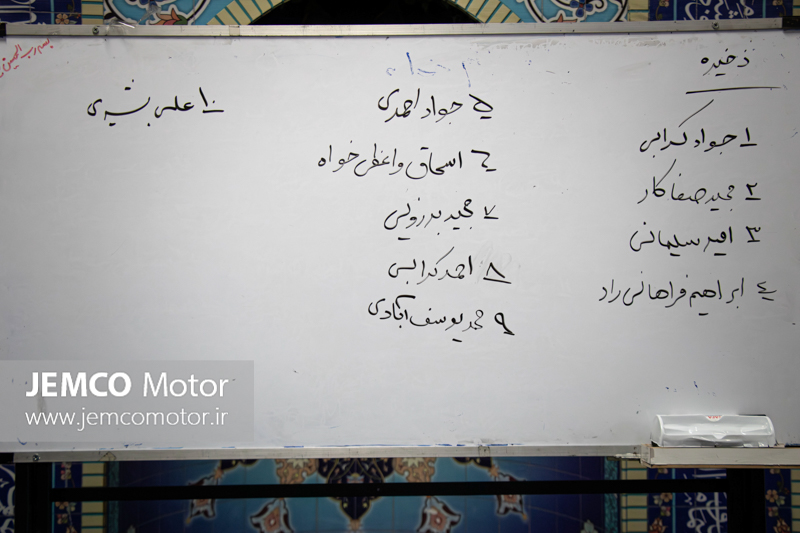 ذخیره
۱ جواد کرابی
۲ مجید صفا کار
۳ امید سلیمانی
۴ ابراهیم فراهانی راد
۵ جواد احمدی
۶ اسحاق واعظی خواه
۷ مجید بدرزویی
۸ احمد کرابی
۹ محمد یوسف آبادی
۱۰ علی بشیری
JEMCO Motor
www.jemcomotor.ir